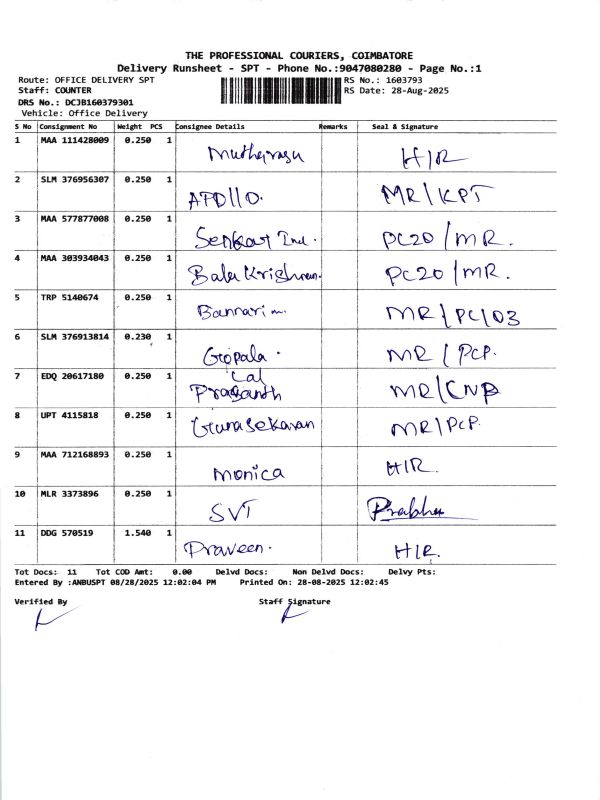 THE PROFESSIONAL COURIERS, COIMBATORE
Delivery Runsheet - SPT - Phone No.:9047080280 - Page No.:1
Route: OFFICE DELIVERY SPT RS No.: 1603793
Staff: COUNTER RS Date: 28-Aug-2025
DRS No.: DCJB160379301
Vehicle: Office Delivery
S No Consignment No Weight PCS Consignee Details Remarks Seal & Signature
1 MAA 111428009 0.250 1 Muthurasu HIR
2 SLM 376956307 0.250 1 APOLLO. MR/KPT
3 MAA 577877008 0.250 1 Senkar Ind. PC20/MR.
4 MAA 303934043 0.250 1 Bala Krishnan. PC20/MR.
5 TRP 5140674 0.250 1 Bannari MR/PC/03
6 SLM 376913814 0.230 1 Gopala. MR/PCP.
7 EDQ 20617180 0.250 1 Lal Prasanth MR/CNP
8 UPT 4115818 0.250 1 Gunasekaran MR/PCP.
9 MAA 712168893 0.250 1 Monica HIR.
10 MLR 3373896 0.250 1 SVT Prabhu
11 DDG 570519 1.540 1 Praveen. HIR.
Tot Docs: 11 Tot COD Amt: 0.00 Delvd Docs: Non Delvd Docs: Delvy Pts:
Entered By :ANBUSPT 08/28/2025 12:02:04 PM Printed On: 28-08-2025 12:02:45
Verified By Staff Signature